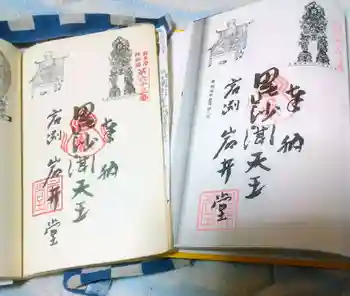 奉納
毘沙門天王
岩渕 岩井堂
奉納
毘沙門天王
岩渕 岩井堂